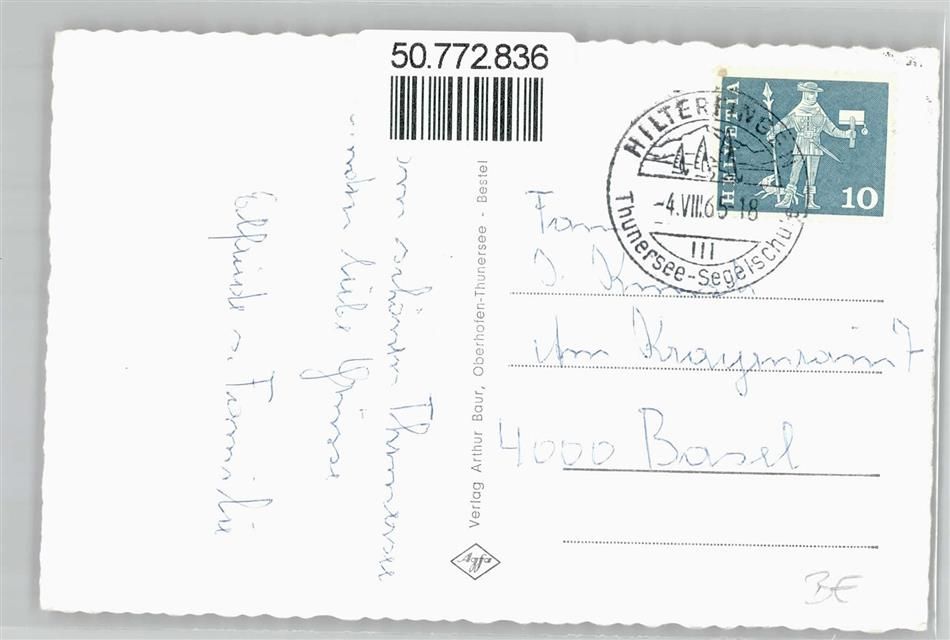 50.772.836
HELVETIA
10
HILTERFINGEN
-4.VIII.65-18
III
Thunersee-Segelschule
vom schönen Thunersee
senden liebe
Grüsse
Elfriede u. Familie
Verlag Arthur Baur, Oberhofen-Thunersee - Bestel
Agfa
Fam
J.
Am Krayenrain 7
4000 Basel
BE